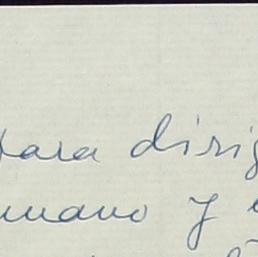 para dirig
umano y